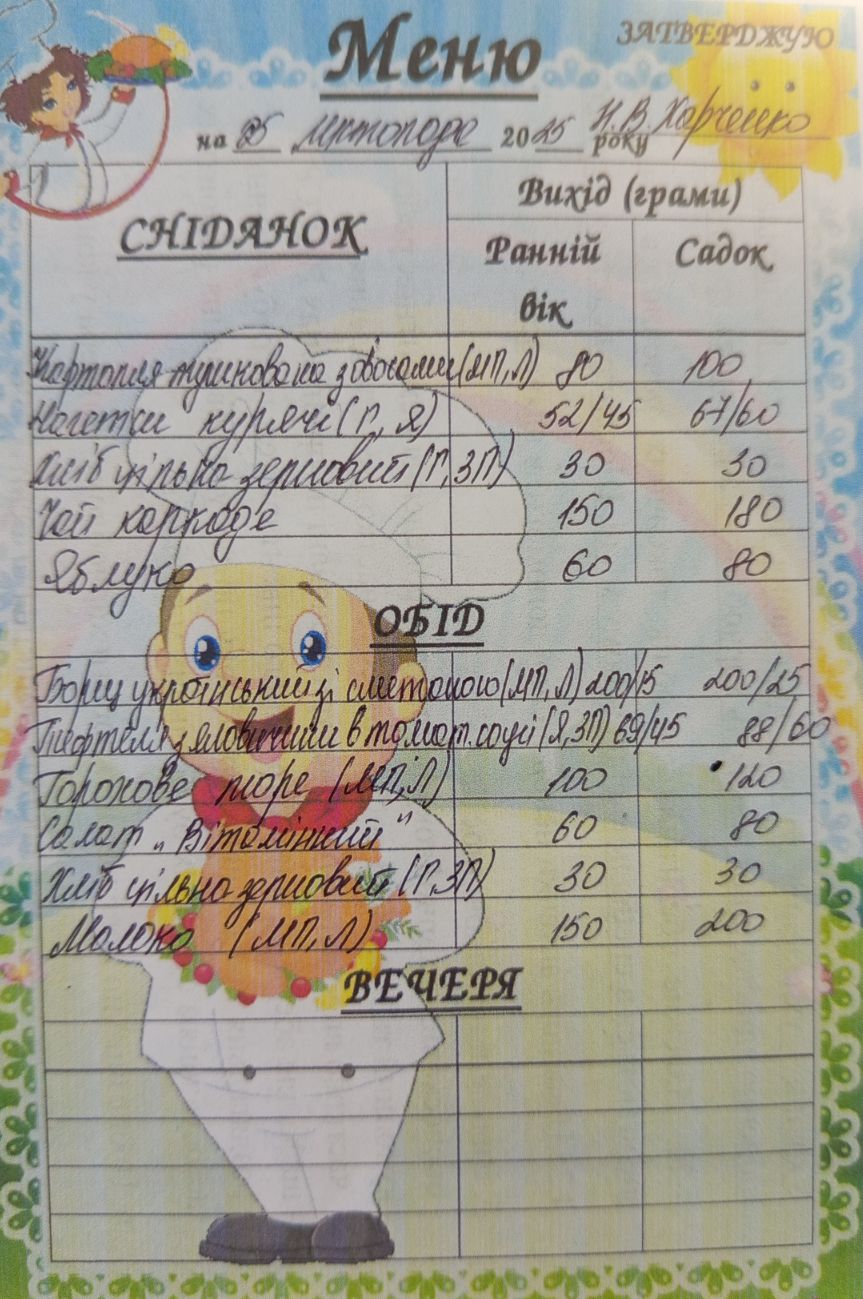 Меню
ЗАТВЕРДЖУЮ
на 25 листопада 2025 року Н.В Харченко
СНІДАНОК
Вихід (грами)
Ранній вік
Садок
Картопля тушкована з овочами (МП, Л) 80 100
Нагетси курячі (Г, Я) 52/45 67/60
Хліб цільно зерновий (Г, ЗП) 30 30
Чай каркаде 150 180
Яблуко 60 80
ОБІД
Борщ український зі сметаною (МП, Л) 200/15 200/25
Тефтеля з яловичини в томат. соусі (Я, ЗП) 69/45 88/60
Горохове пюре (МП, Л) 100 120
Салат „Вітамінний" 60 80
Хліб цільно зерновий (Г, ЗП) 30 30
Молоко (МП, Л) 150 200
ВЕЧЕРЯ